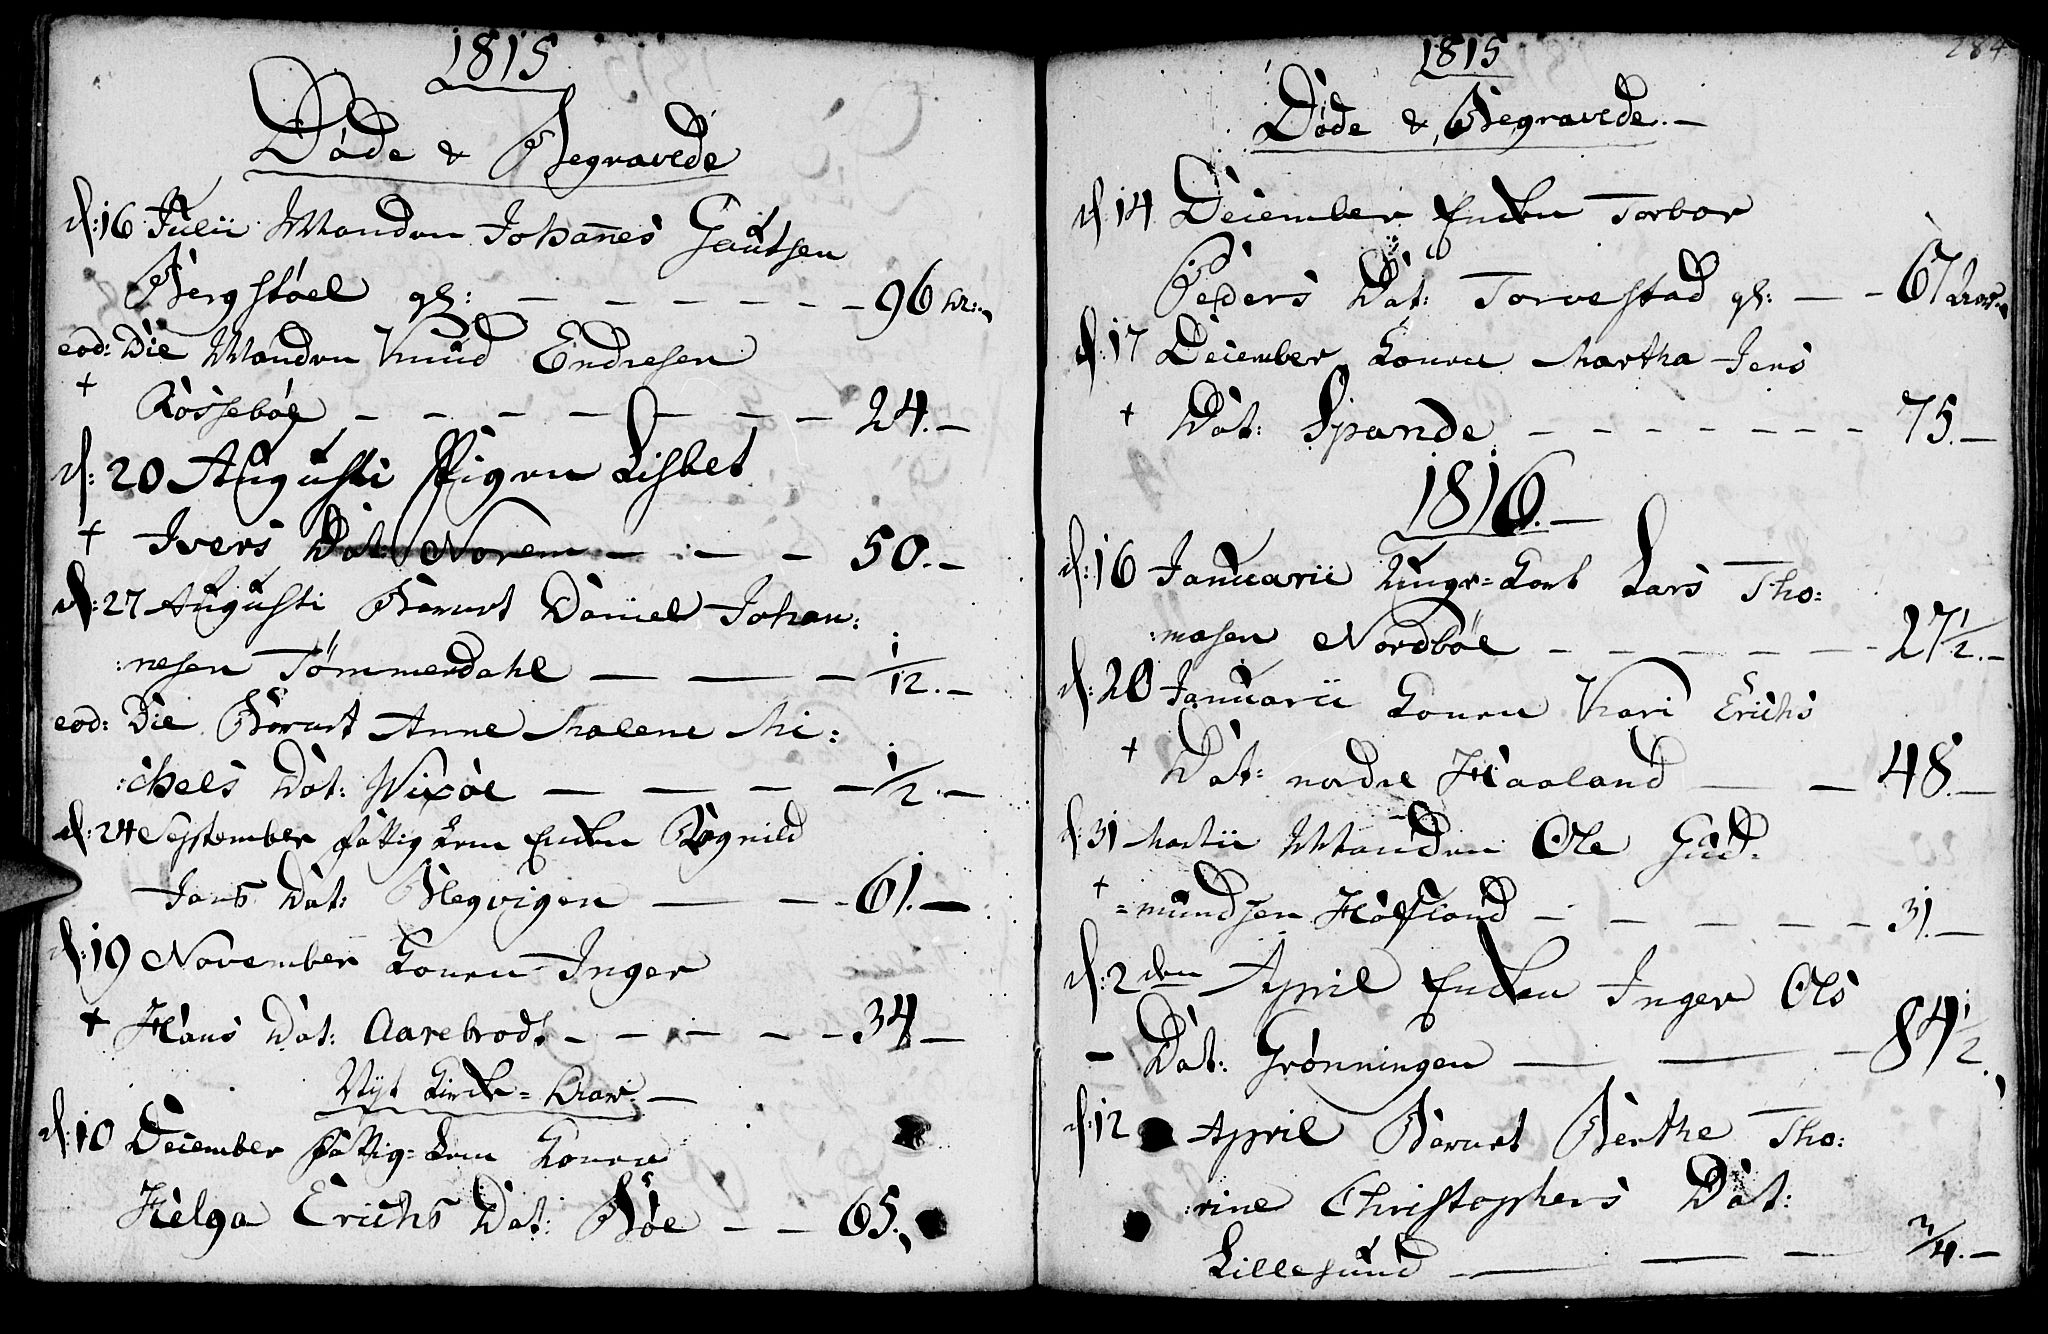 1815
Døde & Begravede
d: 16 Julii Manden Johañes Gautsen
Bergstøel gl: — — — — — 96 Aar.
eod: Die Manden Knud Endresen
+ Røssebøe — — — — — — 24. —
d: 20 Augusti Pigen Lisbet
+ Ivers Dat: Norem — — — 50. —
d: 27 Augusti Barnet Daniel Johan:
:nesen Tömmerdahl — — — 1/12. —
eod: Die Barnet Anne Malene Mi:
:chels Dat: Wixøe — — — — 1/2. —
d: 24 September fattig Lem Enken Ragnild
Jans Dat: Blegvigen — — — 61. —
d: 19 November Konen Inger
+ Hans Dat: Aarebrodt — — — — — 34 —
Nyt Kirke = Aar. —
d: 10 December Fattig = Lem Konen
Helga Erichs Dat: Bøe — — 65.
1815
284
Døde & Begravede. —
d: 14 December Enken Torbor
Peders Dat: Torvestad gl: — — 67 Aar.
d: 17 December Konen Martha Jens
+ Dat: Spande — — — — — — — 75. —
1816. —
d: 16 Januarii Unge = Karl Lars Tho:
:masen Nordbøe — — — — — — 27 1/2. —
d: 20 Januarii Konen Kari Erichs
+ Dat: nordre Haaland — — 48. —
d: 31 Martii Manden Ole Gud=
+ =mundsen Høfland — — — — — — 31. —
d: 2den April Enken Inger Ols
— Dat: Grønningen — — — 84 1/2.
d: 12 April Barnet Berthe Tho:
:rine Christophers Dat:
Lillesund — — — 3/4. —